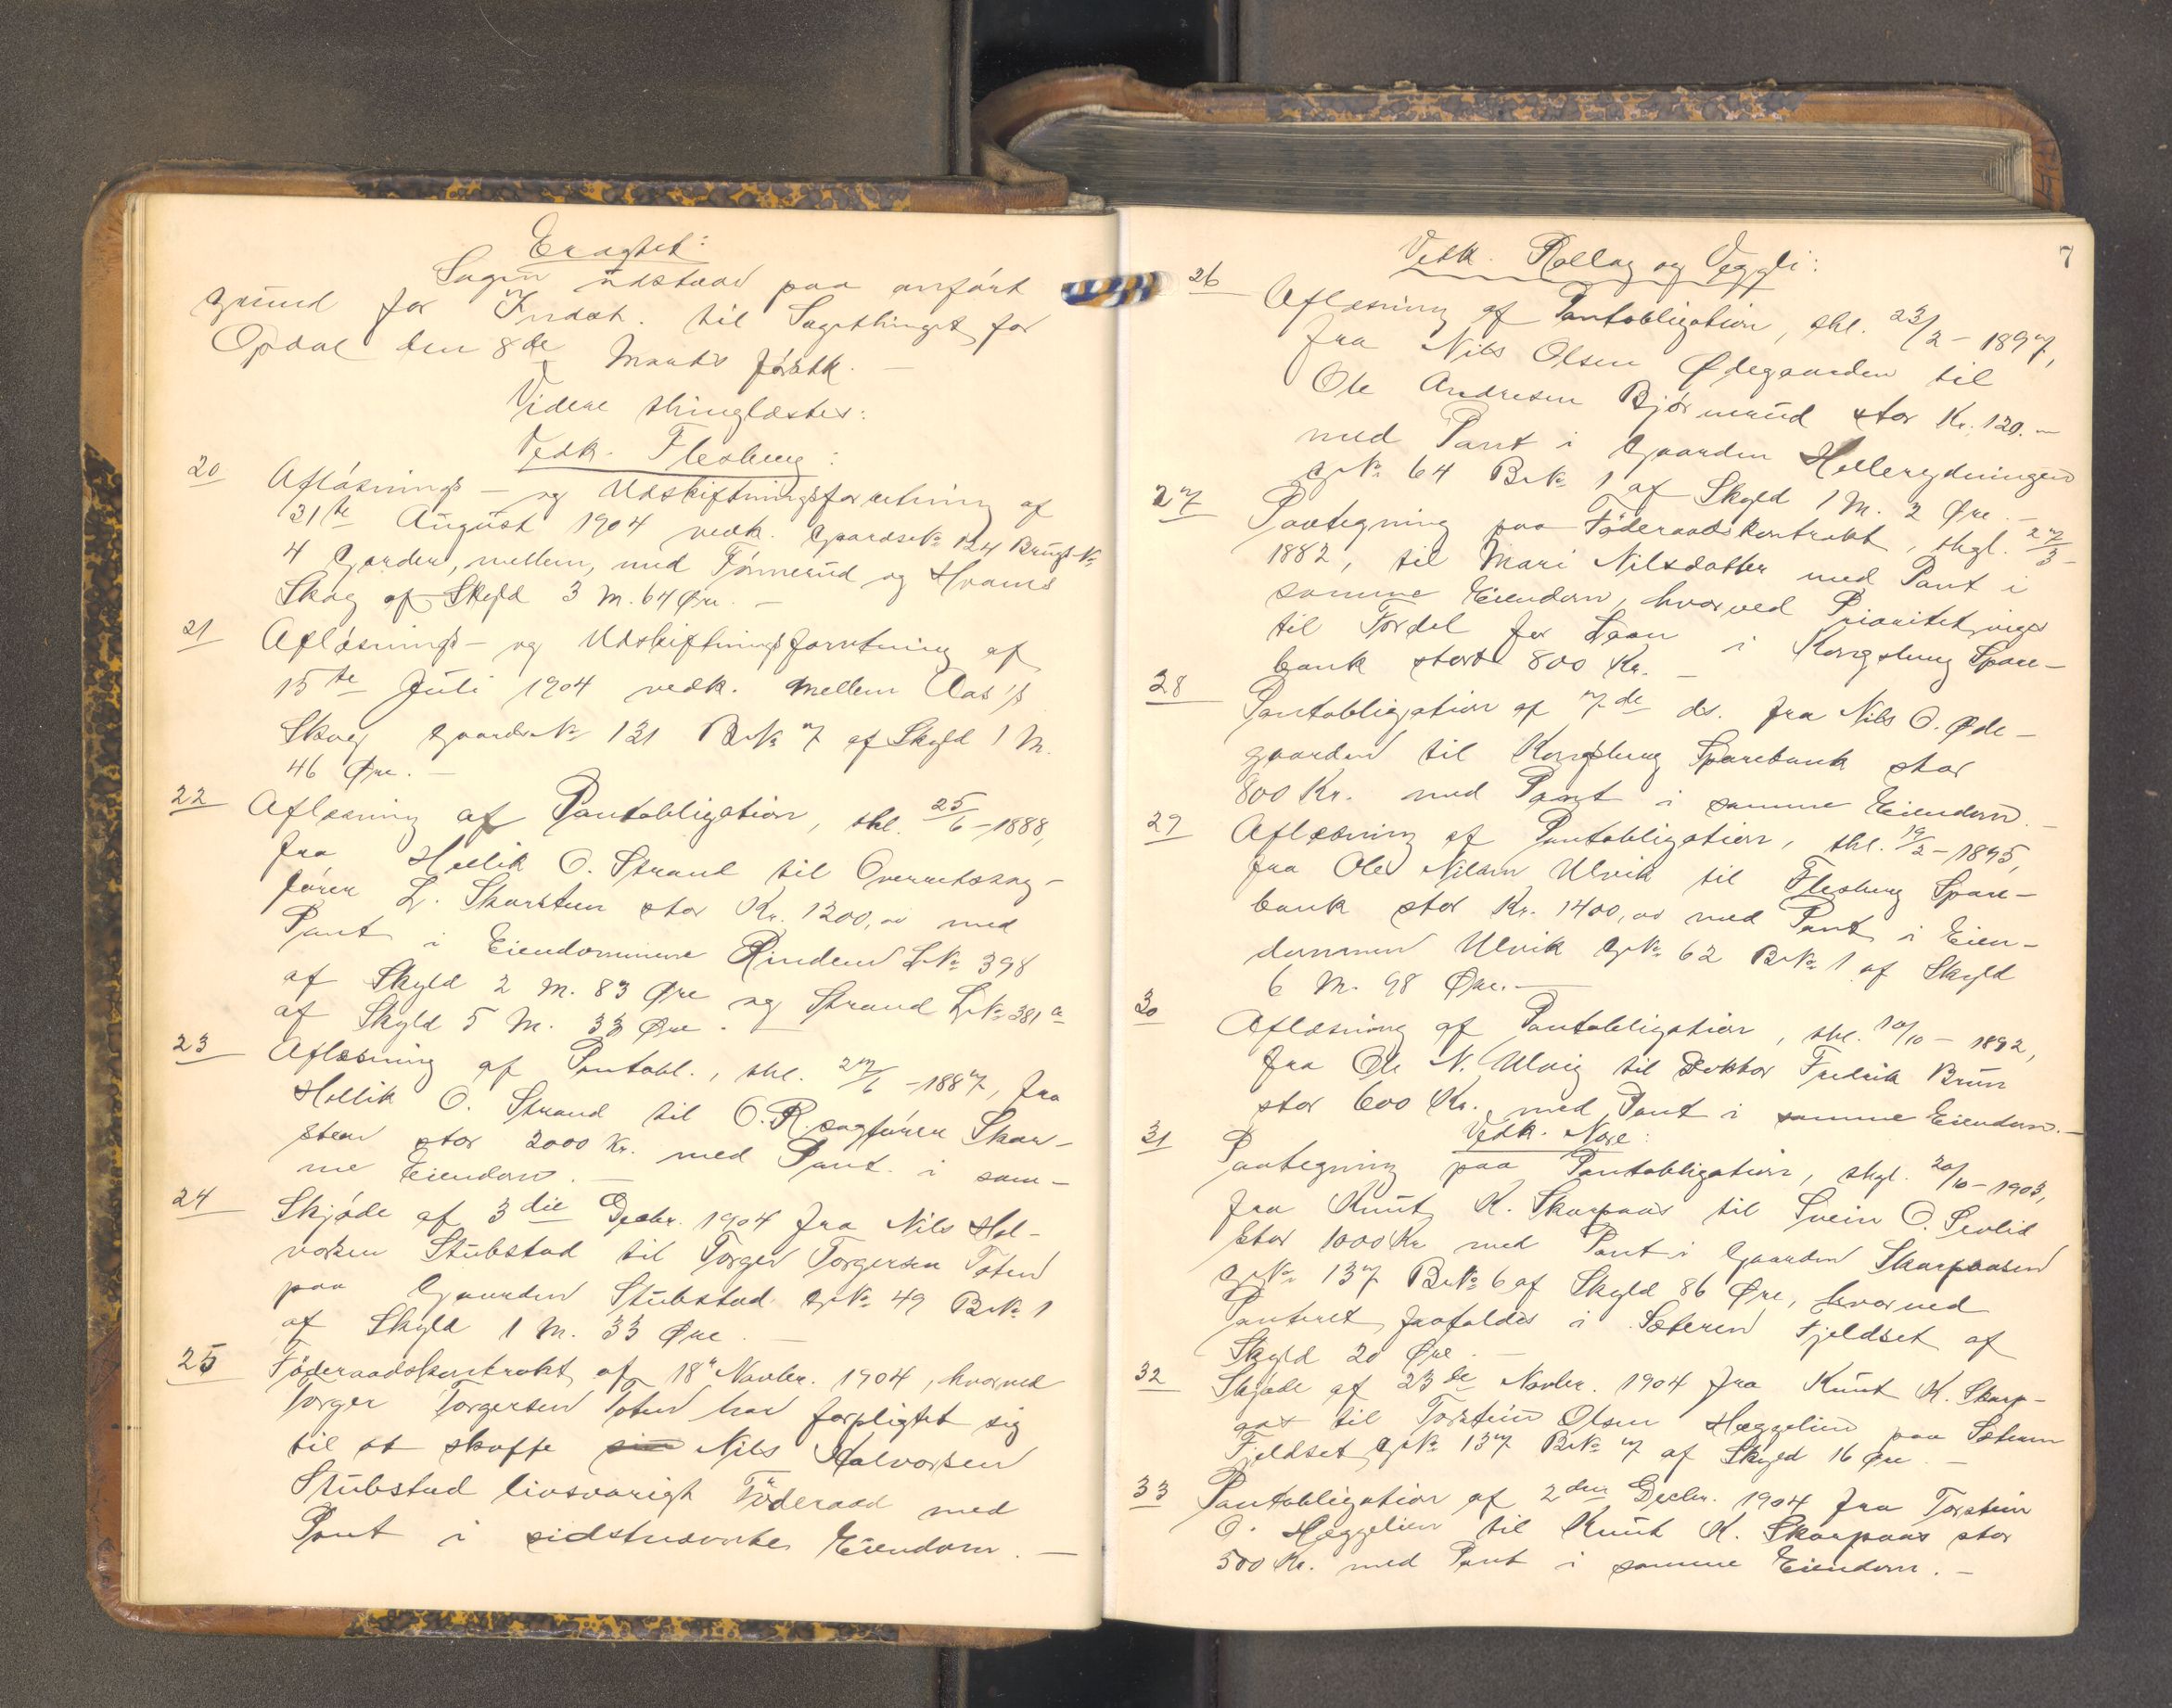 Eragtet:
Sagen udstaar paa anført
Grund for Indst. til Sagethinget for
Opdal den 8de Marts førstk. —
Videre thinglæstes:
Vedk. Flesberg:
20 Afløsnings- og Udskiftningsforretning af
31te August 1904 vedk. GaardsNo 124 BrugsNo
4 Garden, mellem, med Tørmerud og Hvams
Skog af Skyld 3 M. 64 Øre. —
21 Afløsnings- og Udskiftningsforretning af
15te Juli 1904 vedk. mellem Aas's
Skog GaardsNo 121 BrNo 7 af Skyld 1 M.
46 Øre. —
22 Aflæsning af Pantobligation, thl. 25/6-1888,
fra Hellik O. Strand til Overretssag-
fører L. Skarsteen stor Kr. 1200,00 med
Pant i Eiendommene Rinden LNo 398
af Skyld 2 M. 83 Øre og Strand LNo 381a
af Skyld 5 M. 33 Øre. —
23 Aflæsning af Pantobl., thl. 27/6-1887, fra
Hellik O. Strand til O.R.sagfører Skar-
steen stor 2000 Kr. med Pant i sam-
me Eiendom. —
24 Skjøde af 3die Decbr. 1904 fra Nils Hal-
vorsen Stubstad til Torger Torgersen Toten
paa Gaarden Stubstad GNo 49 BrNo 1
af Skyld 1 M. 33 Øre. —
25 Føderaadskontrakt af 18de Novbr. 1904, hvorved
Torger Torgersen Toten har forpligtet sig
til at skaffe sin Nils Halvorsen
Stubstad livsvarigt Føderaad med
Pant i sidstnævnte Eiendom. —
7
Vedk. Rollag og Veggli:
26 Aflæsning af Pantobligation, thl. 23/2-1897,
fra Nils Olsen Ødegaarden til
Ole Andresen Bjørnerud stor Kr. 120.—
med Pant i Gaarden Hellerydningen
GNo 64 BrNo 1 af Skyld 1 M. 2 Øre. —
27 Paategning paa Føderaadskontrakt, thgl. 27/3-
1882, til Mari Nilsdatter med Pant i
samme Eiendom, hvorved Prioritet viges
til Fordel for Laan i Kongsberg Spare-
bank stort 800 Kr. —
28 Pantobligation af 7de ds. fra Nils O. Øde-
gaarden til Kongsberg Sparebank stor
800 Kr. med Pant i samme Eiendom. —
29 Aflæsning af Pantobligation, thl. 19/2-1895,
fra Ole Nilsen Ulvik til Flesberg Spare-
bank stor Kr. 1400,00 med Pant i Eien-
dommen Ulvik GNo 62 BrNo 1 af Skyld
6 M. 98 Øre. —
30 Aflæsning af Pantobligation, thl. 10/10-1892,
fra Ole N. Ulvig til Doktor Fredrik Brun
stor 600 Kr. med Pant i samme Eiendom. —
Vedk. Nore:
31 Paategning paa Pantobligation, thgl. 20/10-1903,
fra Knut K. Skarpaas til Svein O. Sevlid
stor 1000 Kr med Pant i Gaarden Skarpaasen
GNo 137 BrNo 6 af Skyld 86 Øre, hvorved
Panteret frafaldes i Sæteren Fjeldset af
Skyld 20 Øre. —
32 Skjøde af 23de Novbr. 1904 fra Knut K. Skarp-
aas til Torstein Olsen Heggelien paa Sæteren
Fjeldset GNo 137 BrNo 7 af Skyld 16 Øre. —
33 Pantobligation af 2den Decbr. 1904 fra Torstein
O. Heggelien til Knut K. Skarpaas stor
500 Kr. med Pant i samme Eiendom. —